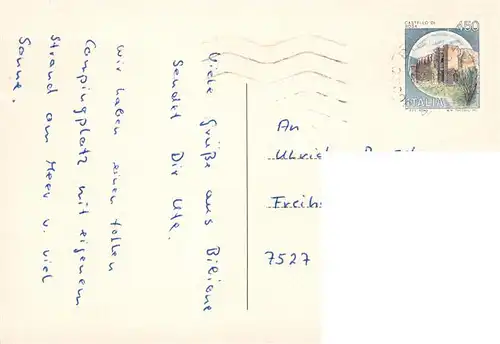 Viele Grüße aus Bibione
sendet Dir Ute.
Wir haben einen tollen
Campingplatz mit eigenem
Strand am Meer u. viel
Sonne.
CASTELLO DI
450
ITALIA
An
Freih
7527